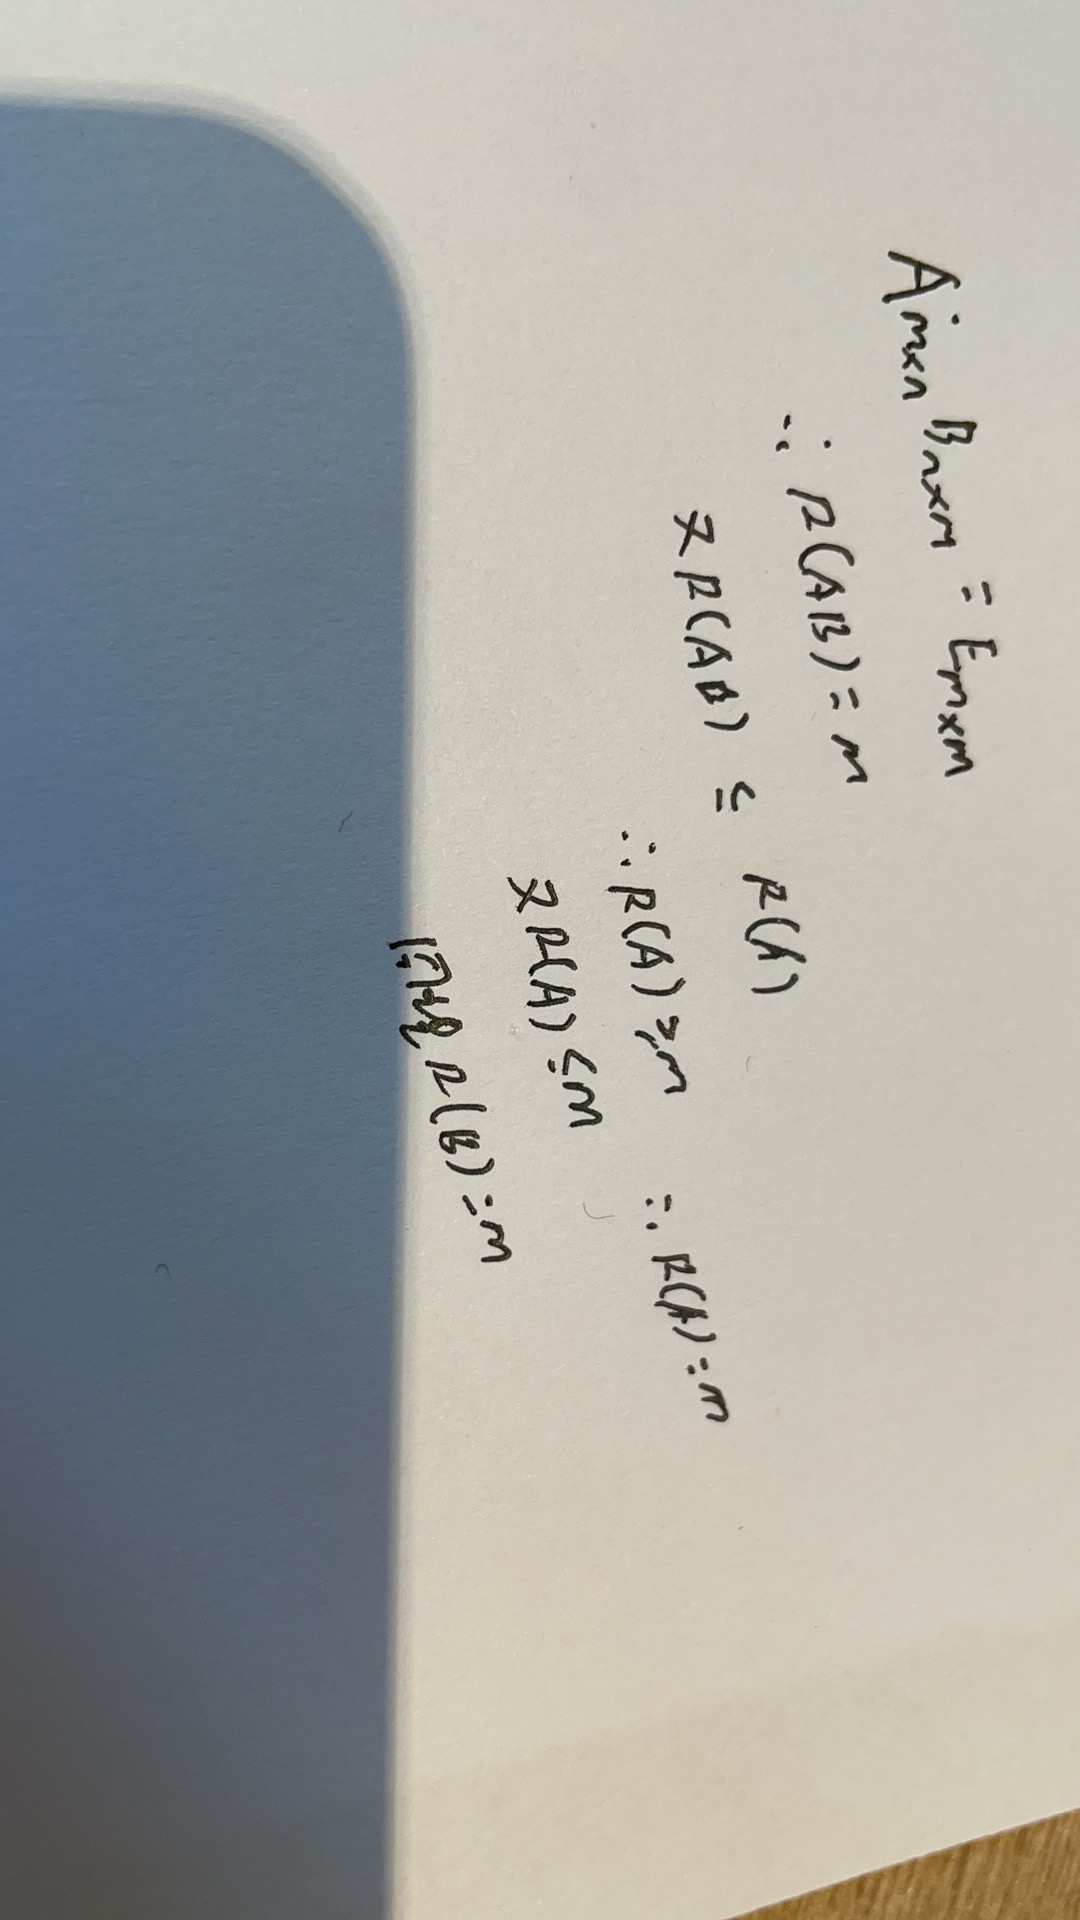 A_{m×n} B_{n×m} = E_{m×m}
∴ R(AB) = m
又 R(AB) ≤ R(A)
∴ R(A) ≥ m ∴ R(A) = m
又 R(A) ≤ m
同理 R(B) = m